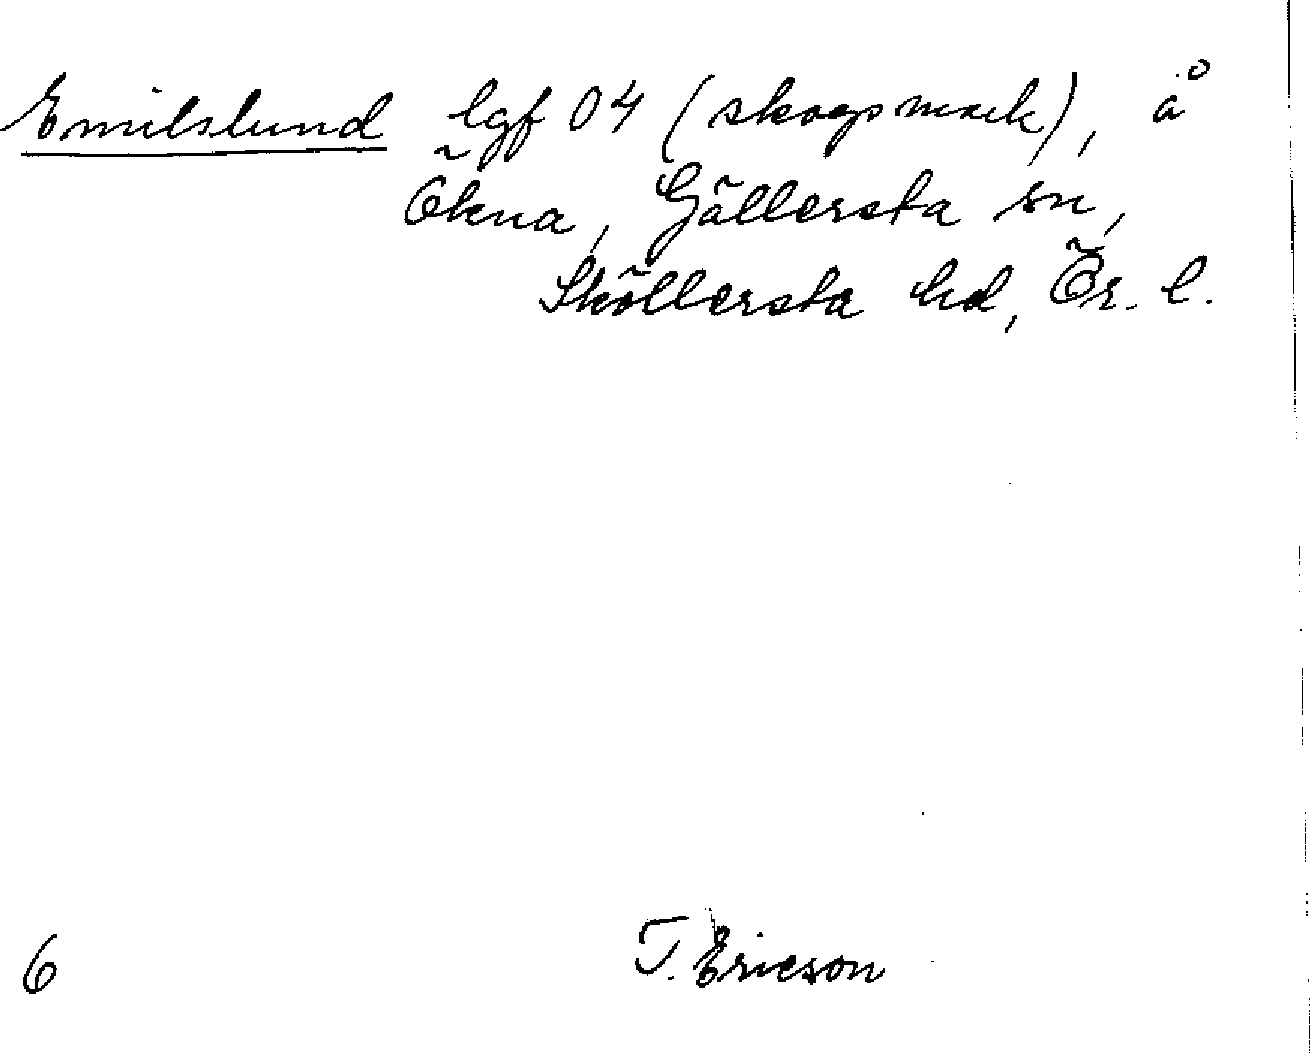 Emilslund lgf 04 (skogsmark), å
Ökna, Gällersta sn,
Sköllersta hd, Ör. l.
6 T. Ericson